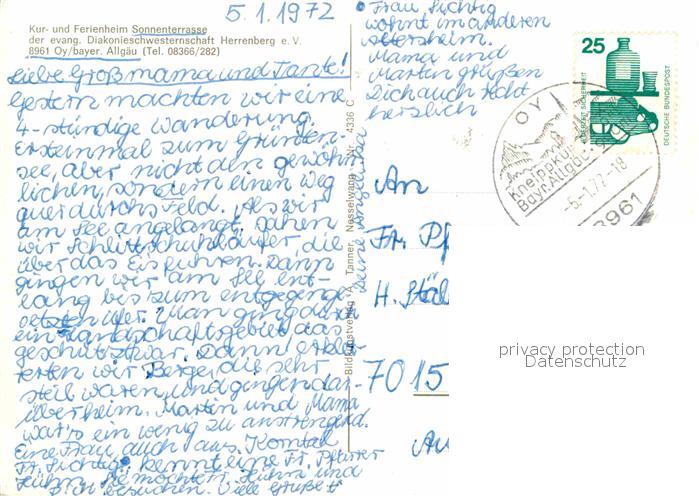 5.1.1972
Kur- und Ferienheim Sonnenterrasse
der evang. Diakonieschwesternschaft Herrenberg e. V.
8961 Oy/bayer. Allgäu (Tel. 08366/282)
Liebe Großmama und Tante!
Gestern machten wir eine
4-stündige Wanderung.
Ersteinmal zum Grünten-
see, aber nicht den gewöhn-
lichen, sondern einen Weg
quer durchs Feld. Als wir
am See angelangt, sahen
wir Schlittschuhläufer die
über das Eis fuhren. Dann
gingen wir am See ent-
lang bis zum entgegenge-
setzten Ufer. Man ging durch
ein Landschaftsgebiet das
geschützt war. Dann
wir Berge, die sehr
steil waren, und gingen dar-
über heim. Martin und Mama
war's ein wenig zu anstrengend.
Eine Frau, auch aus Korntal
Fr. Lichtig kennt eine Fr. Pfarrer
Huhn. Sie möchte Fr. Huhn und
Dich besuchen. Viele Grüße
Frau Lichtig
wohnt im anderen
Altersheim.
Mama und
Martin grüßen
Dich auch recht
herzlich
Bildkunstverlag A. Tanner, Nesselwang Nr. 4336 C
An
Fr. Pf
H. Stäb
7015
Au
25
JEDERZEIT SICHERHEIT
DEUTSCHE BUNDESPOST
OY
Kneippkur
Bayr. Allgäu
-5.-1.72-18
8961
privacy protection
Datenschutz